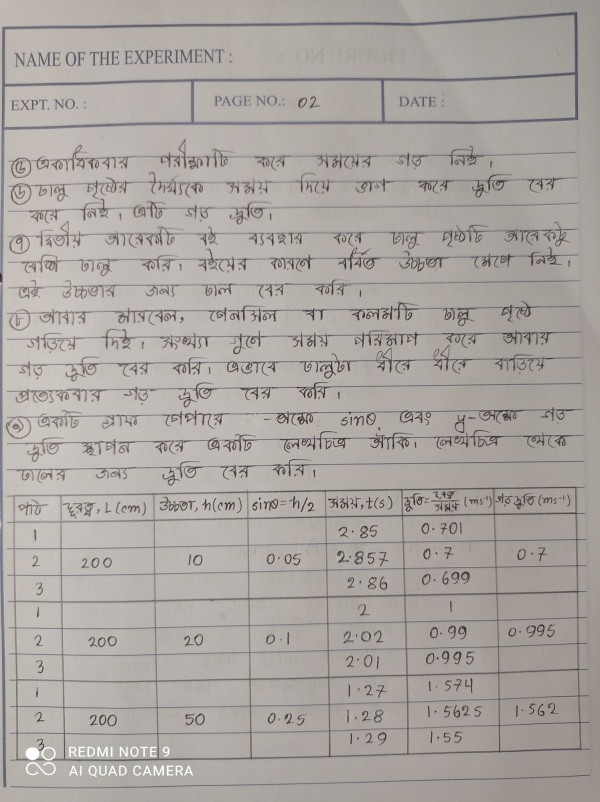 NAME OF THE EXPERIMENT :
EXPT. NO. :
PAGE NO.: 02
DATE :
৫) একাধিকবার পরীক্ষাটি করে সময়ের গড় নিই।
৬) ঢালু পৃষ্ঠের দৈর্ঘ্যকে সময় দিয়ে ভাগ করে দ্রুতি বের
করে নিই। এটি গড় দ্রুতি।
৭) দ্বিতীয় আরেকটি বই ব্যবহার করে ঢালু পৃষ্ঠটি আরেকটু
বেশি ঢালু করি। বইয়ের কারণে বর্ধিত উচ্চতা মেপে নিই।
এই উচ্চতার জন্য ঢাল বের করি।
৮) আবার মারবেল, পেনসিল বা কলমটি ঢালু পৃষ্ঠে
গড়িয়ে দিই। সংখ্যা গুণে সময় পরিমাপ করে আবার
গড় দ্রুতি বের করি। এভাবে ঢালুটা ধীরে ধীরে বাড়িয়ে
প্রত্যেকবার গড় দ্রুতি বের করি।
৯) একটি গ্রাফ পেপারে -অক্ষে sinθ এবং y-অক্ষে গড়
দ্রুতি স্থাপন করে একটি লেখচিত্র আঁকি। লেখচিত্র থেকে
ঢালের জন্য দ্রুতি বের করি।
পাঠ দূরত্ব, L(cm) উচ্চতা, h(cm) sinθ=h/2 সময়, t(s) দ্রুতি=দূরত্ব/সময় (ms⁻¹) গড় দ্রুতি (ms⁻¹)
1 2.85 0.701
2 200 10 0.05 2.857 0.7 0.7
3 2.86 0.699
1 2 1
2 200 20 0.1 2.02 0.99 0.995
3 2.01 0.995
1 1.27 1.574
2 200 50 0.25 1.28 1.5625 1.562
3 1.29 1.55
REDMI NOTE 9
AI QUAD CAMERA